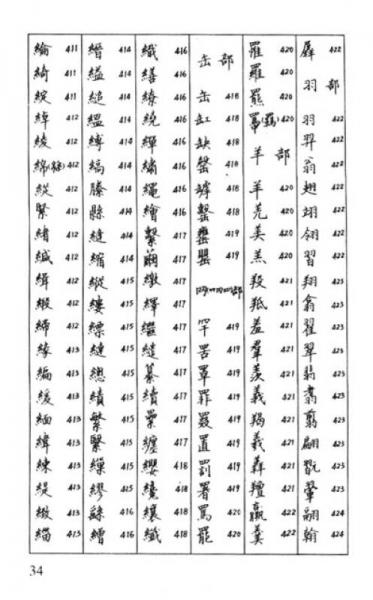 綸 411
綺 411
綻 411
綽 412
綾 412
412
412
緊 412
緒 412
緘 412
緝 412
緞 412
締 412
緣 413
編 413
緩 413
緬 413
緯 413
練 413
緹 413
緻 413
413
縉 414
縊 414
縋 414
縕 414
縛 414
縞 414
縢 414
縣 414
縫 414
縮 414
縱 415
縷 415
縹 415
縫 415
總 415
績 415
繁 415
繄 415
繅 415
繆 415
繇 416
繒 416
織 416
繕 416
繚 416
繞 416
繟 416
繡 416
繩 416
繪 416
繫 417
繭 417
繳 417
繹 417
繼 417
繾 417
纂 417
續 417
纍 417
纏 417
纓 418
纔 418
纕 418
纖 418
缶部
缶 418
缸 418
缺 418
罄 418
罅 418
418
419
罌 419
部
罕 419
罟 419
罩 419
罪 419
419
置 419
罰 419
署 419
罵 420
罷 420
羅 420
羅 420
羆 420
420
羊部
羊 420
羌 420
美 420
羔 420
羖 421
羝 421
羞 421
羣 421
羨 421
義 421
羯 421
羲 421
421
羶 421
羸 422
羹 422
羼 422
羽部
羽 422
羿 422
翁 422
翅 422
翊 422
翎 422
習 422
翔 423
翕 423
翟 423
翠 423
翡 423
翥 423
翦 423
翩 423
翫 423
423
翮 424
翰 424
34